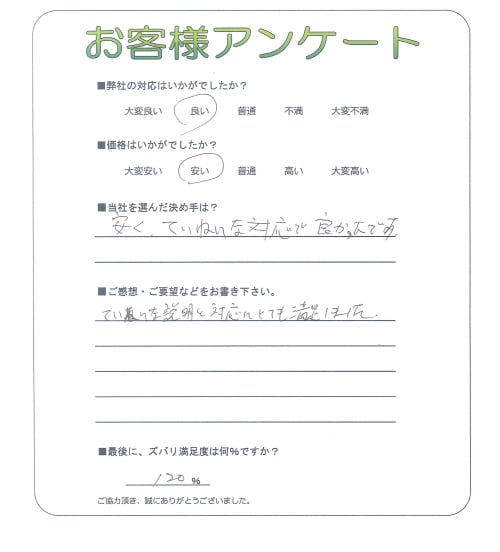 お客様アンケート
■弊社の対応はいかがでしたか？
大変良い 良い 普通 不満 大変不満
■価格はいかがでしたか？
大変安い 安い 普通 高い 大変高い
■当社を選んだ決め手は？
安く、ていねいな対応で良かったです
■ご感想・ご要望などをお書き下さい。
ていねいな説明と対応にとても満足しました。
■最後に、ズバリ満足度は何％ですか？
120 ％
ご協力頂き、誠にありがとうございました。